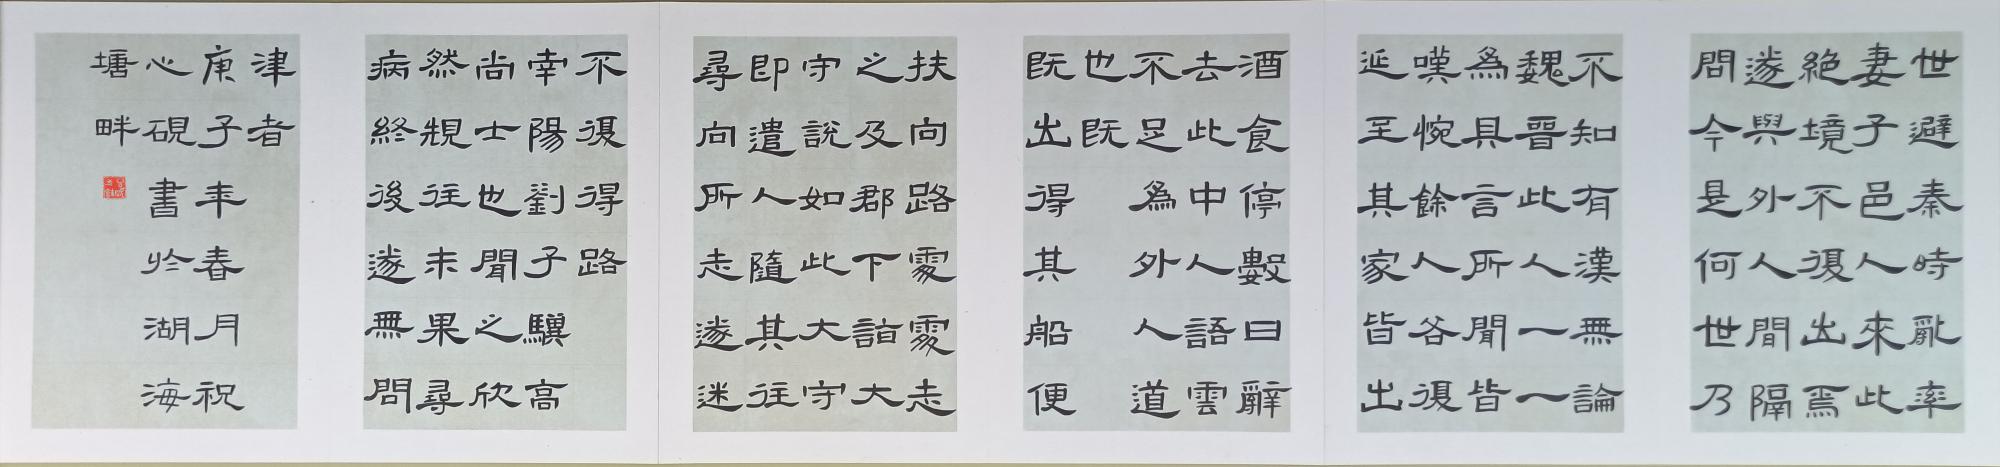 世避秦時亂率
妻子邑人來此
絕境不復出焉
遂與外人間隔
問今是何世乃
不知有漢無論
魏晉此人一一
為具言所聞皆
嘆惋餘人各復
延至其家皆出
酒食停數日辭
去此中人語雲
不足為外人道
也既
既出得其船便
扶向路處處志
之及郡下詣大
守說如此大守
即遣人隨其往
尋向所志遂迷
不復得路
南陽劉子驥高
尚士也聞之欣
然規往未果尋
病終後遂無問
津者
庚子年春月祝
心硯書於湖海
塘畔